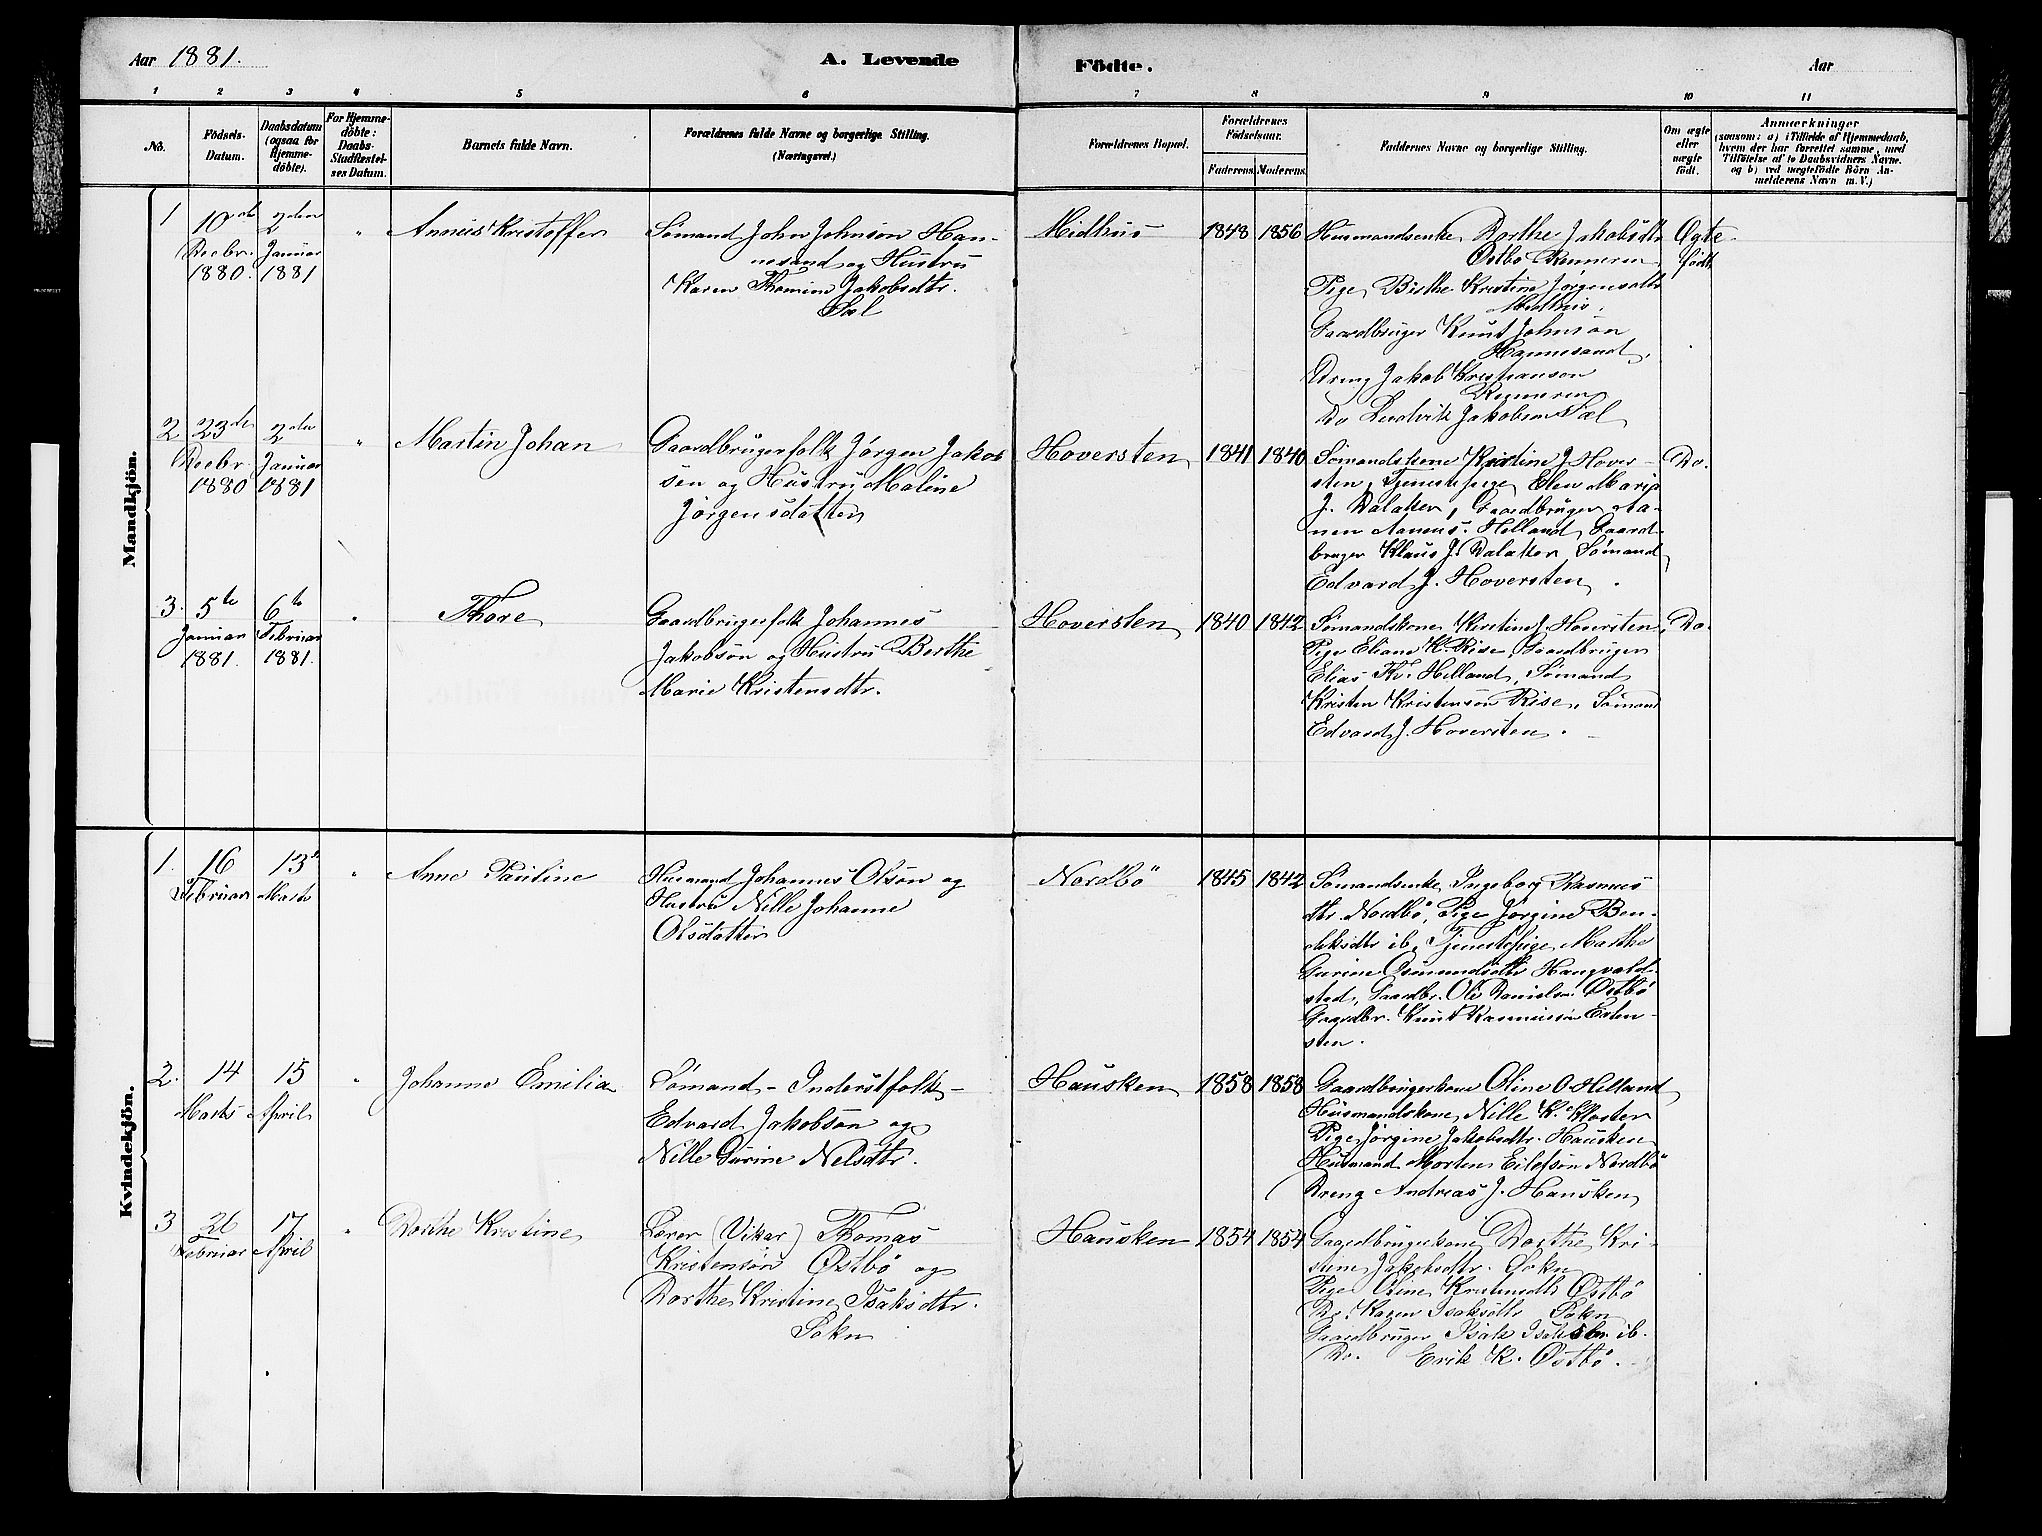 Aar 1881.
A. Levende
Födte.
Aar
1 2 3 4 5 6 7 8 9 10 11
No.
Födsels-
Datum.
Daabsdatum
(ogsaa for
Hjemme-
döbte).
For Hjemme-
döbte:
Daabs-
Stadfæstel-
ses Datum.
Barnets fulde Navn.
Forældrenes fulde Navne og borgerlige Stilling.
(Næringsvei.)
Forældrenes Bopæl.
Forældrenes
Födselsaar.
Faderens. Moderens.
Faddernes Navne og borgerlige Stilling.
Om ægte
eller
uægte
födt.
Anmærkninger
(saasom: a) i Tilfælde af Hjemmedaab,
hvem der har forrettet samme, med
Tilföielse af to Daabsvidners Navne.
og b) ved uægtefödte Börn An-
melderens Navn m. V.)
Mandkjön.
1
10de
Decbr.
1880.
2den
Januar
1881
"
Annius Kristoffer
Sømand John Johnson Han-
nesand og Hustru
Karen Thomine Jakobsdtr.
Sæl
Midhus
1848
1856
Husmandsenke Dorthe Jakobsdtr
Østbø Renneren
Pige Birthe Kristine Jørgensdtr
Midhus.
Gaardbruger Knut Johnson
Hannesand,
Dreng Jakob Kristianson
Renneren
Do Ludvik Jakobsen Sæl
Ægte
født
2
23de
Decbr
1880
2den
Januar
1881
"
Martin Johan
Gaardbrugerfolk Jørgen Jakob
sen og Hustru Maline
Jørgensdatter
Hoversten
1841
1840
Sømandskone Kristine J. Hover-
sten, Tjenestepige Elen Marie
J. Dalaker, Gaardbruger Aa-
nen Aanens. Helland, Gaard-
bruger Klaus J. Dalaker Sømand
Edvard J. Hoversten.
Do.
3.
5te
Januar
1881.
6te
Februar
1881.
"
Thore
Gaardbrugerfolk Johannes
Jakobson og Hustru Berthe
Marie Kristensdtr.
Hoversten
1840
1842
Sømandskone Kristine J. Hoversten,
Pige Eliane K. Rise, Gaardbruger
Elias Kr. Helland, Sømand
Kristen Kristenson Rise, Sømand
Edvard J. Hoversten.
Do.
Kvindekjön.
1.
16
Februar
13
Marts
"
Anne Pauline
Husmand Johannes Olson og
Hustru Nille Johanne
Olsdatter
Nordbö
1845
1842
Sømandsenke Ingeborg Rasmus
dtr. Nordbö, Pige Jørgine Ben-
diksdtr ib, Tjenestepige Marthe
Gurine Osmundsdtr Haugvald-
stad, Gaardbr. Ole Danielsen Østbø
Gaardbr. Knut Rasmusson Esten-
sten.
2.
14
Marts
15
April
"
Johanne Emilia
Sømand - Inderstfolk -
Edvard Jakobson og
Nille Gurine Nelsdtr.
Hausken
1858
1858
Gaardbrugerkone Oline O. Helland
Husmandskone Nille K. Kloster
Pige Jørgine Jakobsdtr. Hausken
Husmand Morten Eilefson Nordbö
Dreng Andreas J. Hausken
3
26
Februar
17
April
"
Dorthe Kristine
Lærer (Vikar) Thomas
Kristenson Østbö og
Dorthe Kristine Isaksdtr.
Sokn
Hausken
1854
1854
Gaardbrugerkone Dorthe Kri-
stene Jakobsdtr. Sokn
Pige Oline Kristensdtr Østbö
Do. Karen Isaksdtr Sokn
Gaardbruger Isak Isakson ib.
Do. Erik K. Østbö.